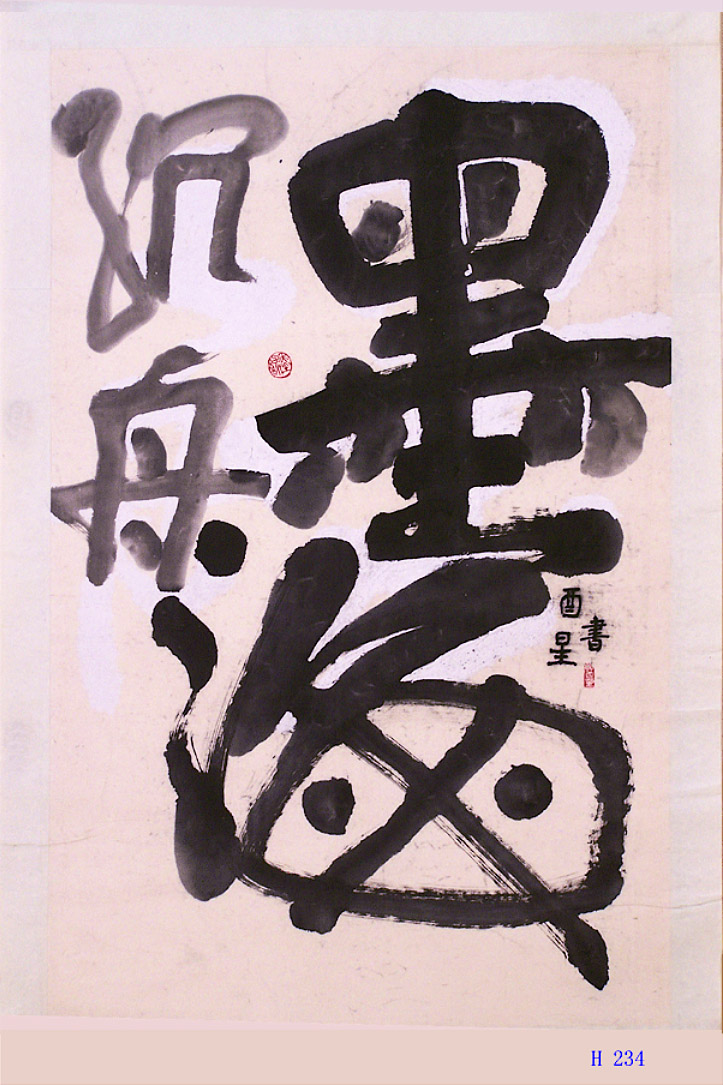 墨海
沉舟
酉星
書
H 234